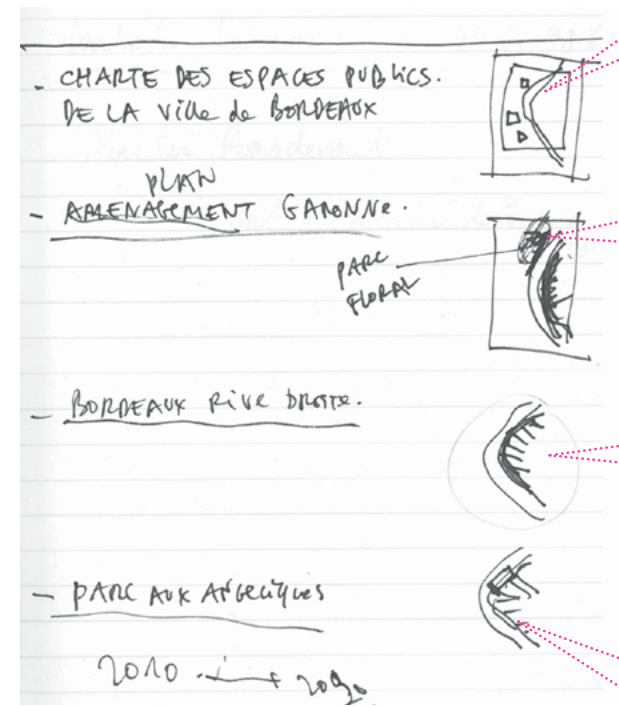 - CHARTE DES ESPACES PUBLICS.
DE LA Ville de BORDEAUX
PLAN
- AMENAGEMENT GARONNE.
PARC
FLORAL
- BORDEAUX RIVE DROITE.
- PARC AUX ANGELIQUES
2010